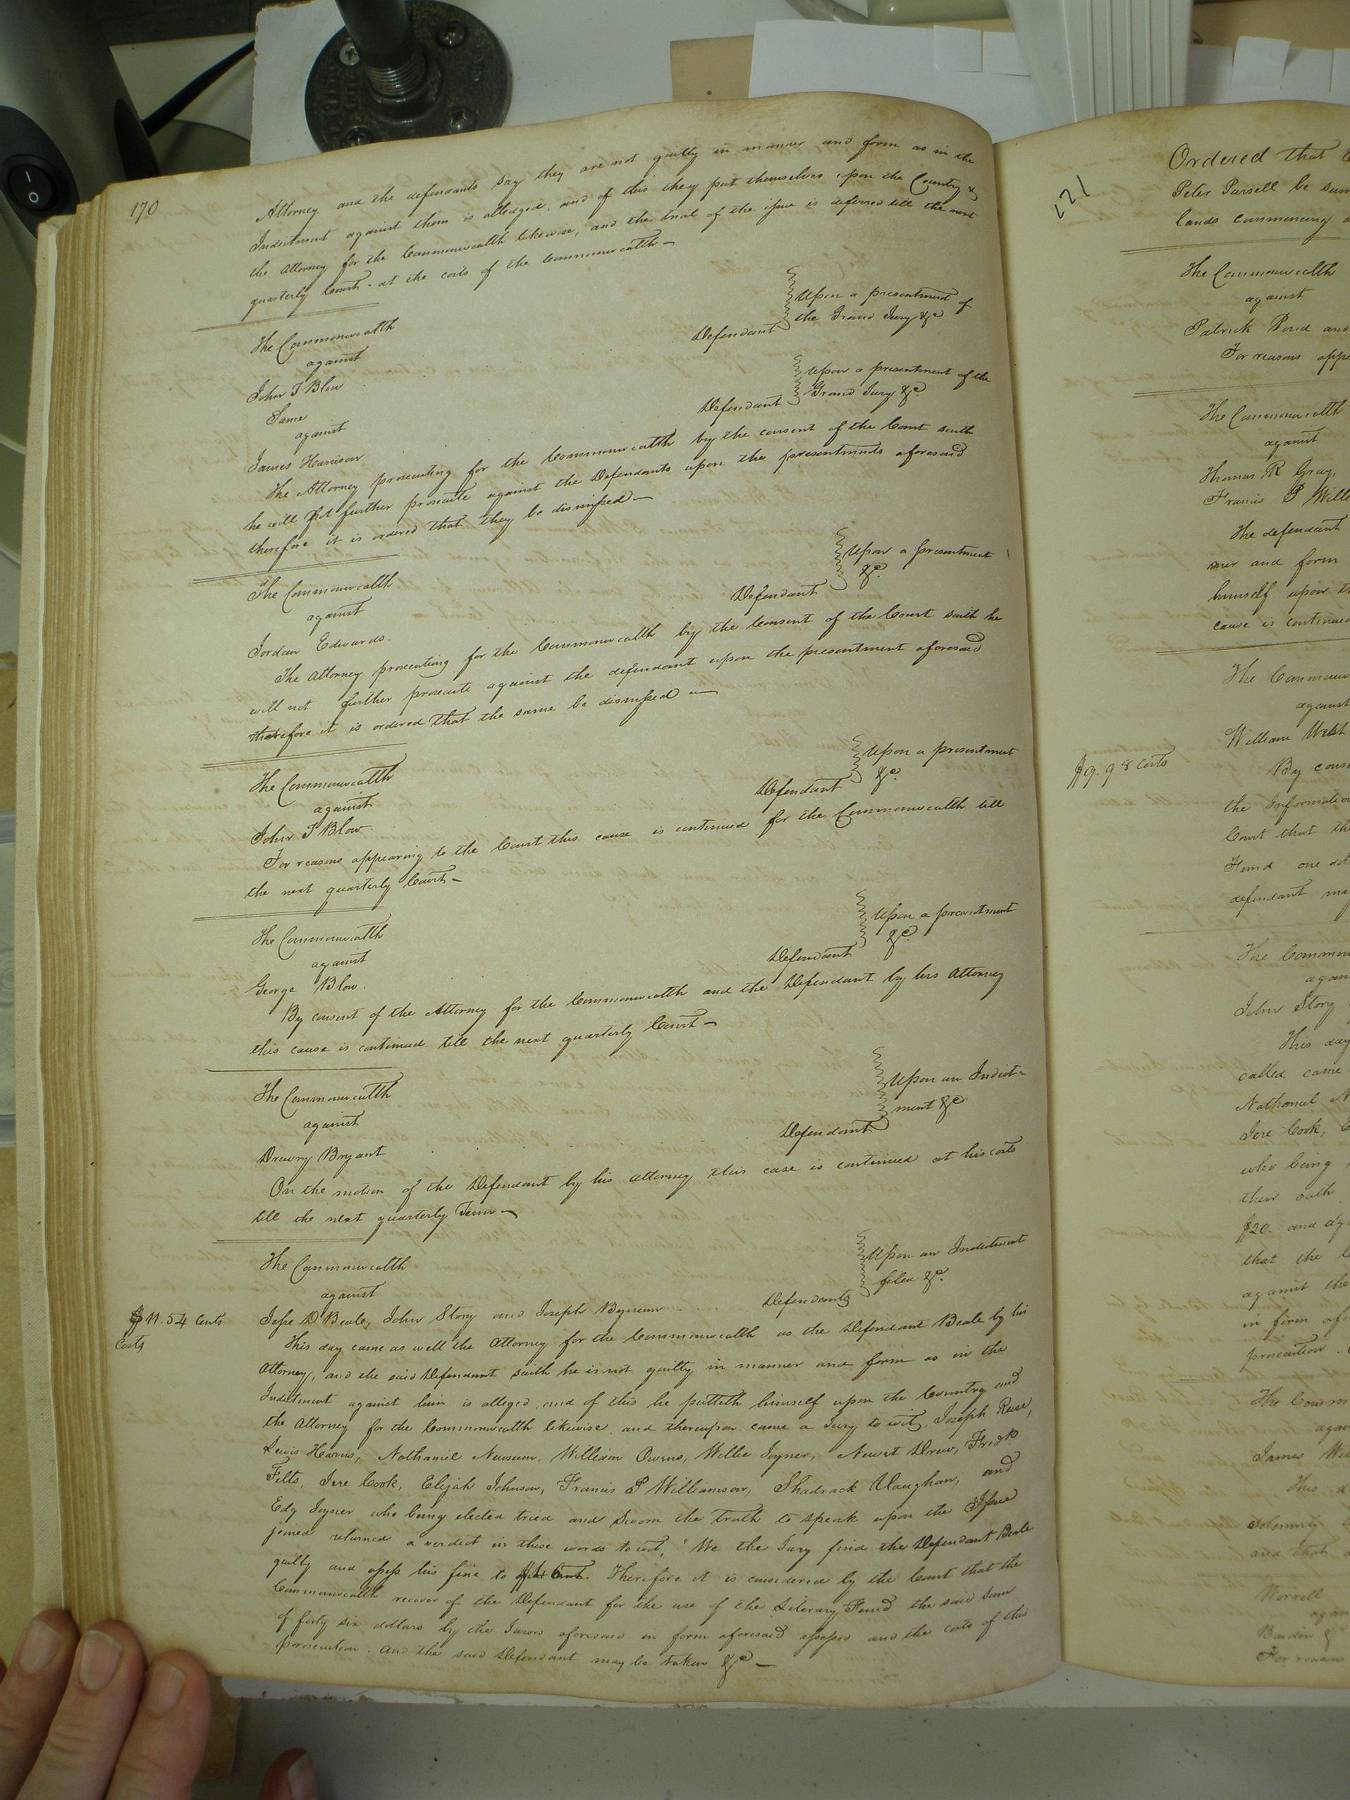 170
Attorney and the defendants say they are not guilty in manner and form as in the
Indictment against them is alledged, and of this they put themselves upon the Country &
the Attorney for the Commonwealth likewise, and the trial of the issue is deferred till the next
quarterly Court - at the costs of the Commonwealth—
The Commonwealth
against
John T Blow Defendant
Upon a presentment of
the Grand Jury &c
Same
against
James Harrison Defendant
Upon a presentment of the
Grand Jury &c
The Attorney prosecuting for the Commonwealth by the consent of the Court saith
he will not further prosecute against the Defendants upon the presentments aforesaid
therefore it is ordered that they be dismissed—
The Commonwealth
against
Jordan Edwards. Defendant
Upon a presentment
&c.
The Attorney prosecuting for the Commonwealth by the Consent of the Court saith he
will not further prosecute against the defendant upon the presentment aforesaid
therefore it is ordered that the same be dismissed —
The Commonwealth
against
John T Blow Defendant
Upon a presentment
&c.
For reasons appearing to the Court this cause is continued for the Commonwealth till
the next quarterly Court—
The Commonwealth
against
George Blow. Defendant
Upon a presentment
&c.
By consent of the Attorney for the Commonwealth and the Defendant by his Attorney
this cause is continued till the next quarterly Court—
The Commonwealth
against
Drewry Bryant Defendant
Upon an Indict-
ment &c
On the motion of the Defendant by his attorney this case is continued at his costs
till the next quarterly Term—
The Commonwealth
against
Jesse D Beale, John Story and Joseph Bynum Defendants
Upon an Indictment
filed &c.
$11.54 Cents
Costs
This day came as well the Attorney for the Commonwealth as the Defendant Beale by his
Attorney, and the said Defendant saith he is not guilty in manner and form as in the
Indictment against him is alleged, and of this he putteth himself upon the Country and
the Attorney for the Commonwealth likewise, and thereupon came a Jury to wit, Joseph
Lewis Harris, Nathaniel Newsum, William Owens, Willie Joyner, Newit Drew, Fredk
Felts, Jere Cook, Elijah Johnson, Francis P Williamson, Shadrack Vaughan, and
Edy Joyner who being elected tried and Sworn the truth to speak upon the Issue
joined returned a verdict in these words to wit, "We the Jury find the Defendant Beale
guilty and assess his fine to Therefore it is considered by the Court that the
Commonwealth recover of the Defendant for the use of the Literary Fund the said Sum
of forty six dollars by the Jurors aforesaid in form aforesaid assessed and the costs of this
prosecution. And the said Defendant may be taken &c —
Ordered that
Peter Pursell be
lands commencing
The Commonwealth
against
Patrick and
For reasons
The Commonwealth
against
Thomas R Gray,
Francis P
The defendant
and form
himself upon
cause is continued
The
against
William West
$9.98 Costs
By
the Information
Court that
one
defendant
The
John Story
This day
called came
Nathaniel
Jere Cook,
who being
their oath
$20. and
that the
against the
in form
prosecution.
The
James
This
and that
Worrell
For reasons